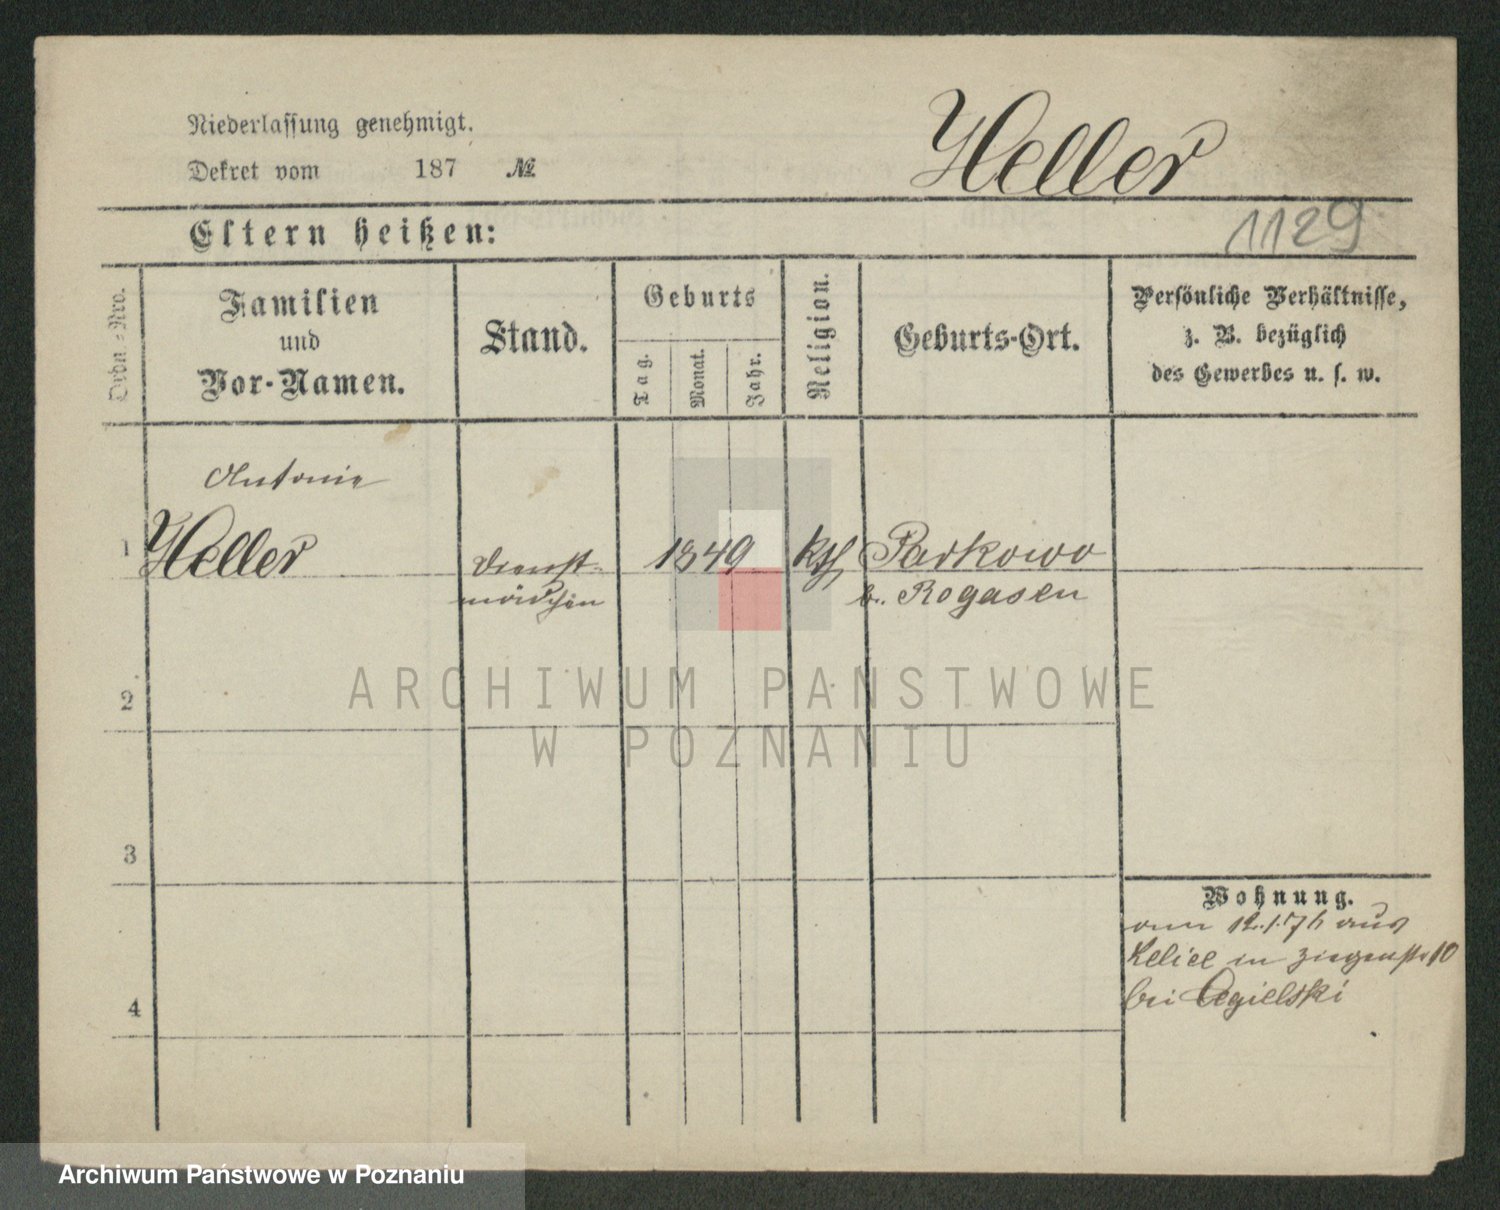 Niederlassung genehmigt.
Dekret vom 187 №
Heller
1129
Eltern heißen:
Ordn.-Nro.
Familien
und
Vor-Namen.
Stand.
Geburts
Tag.
Monat.
Jahr.
Religion.
Geburts-Ort.
Persönliche Verhältnisse,
z. B. bezüglich
des Gewerbes u. s. w.
Antonie
1 Heller Dienst- 1849 kth Parkowo
mädchen b. Rogasen
2
3
4
Wohnung.
am 12.1.76 aus
in Ziegenstr 10
bei Cegielski
ARCHIWUM PAŃSTWOWE
W POZNANIU
Archiwum Państwowe w Poznaniu